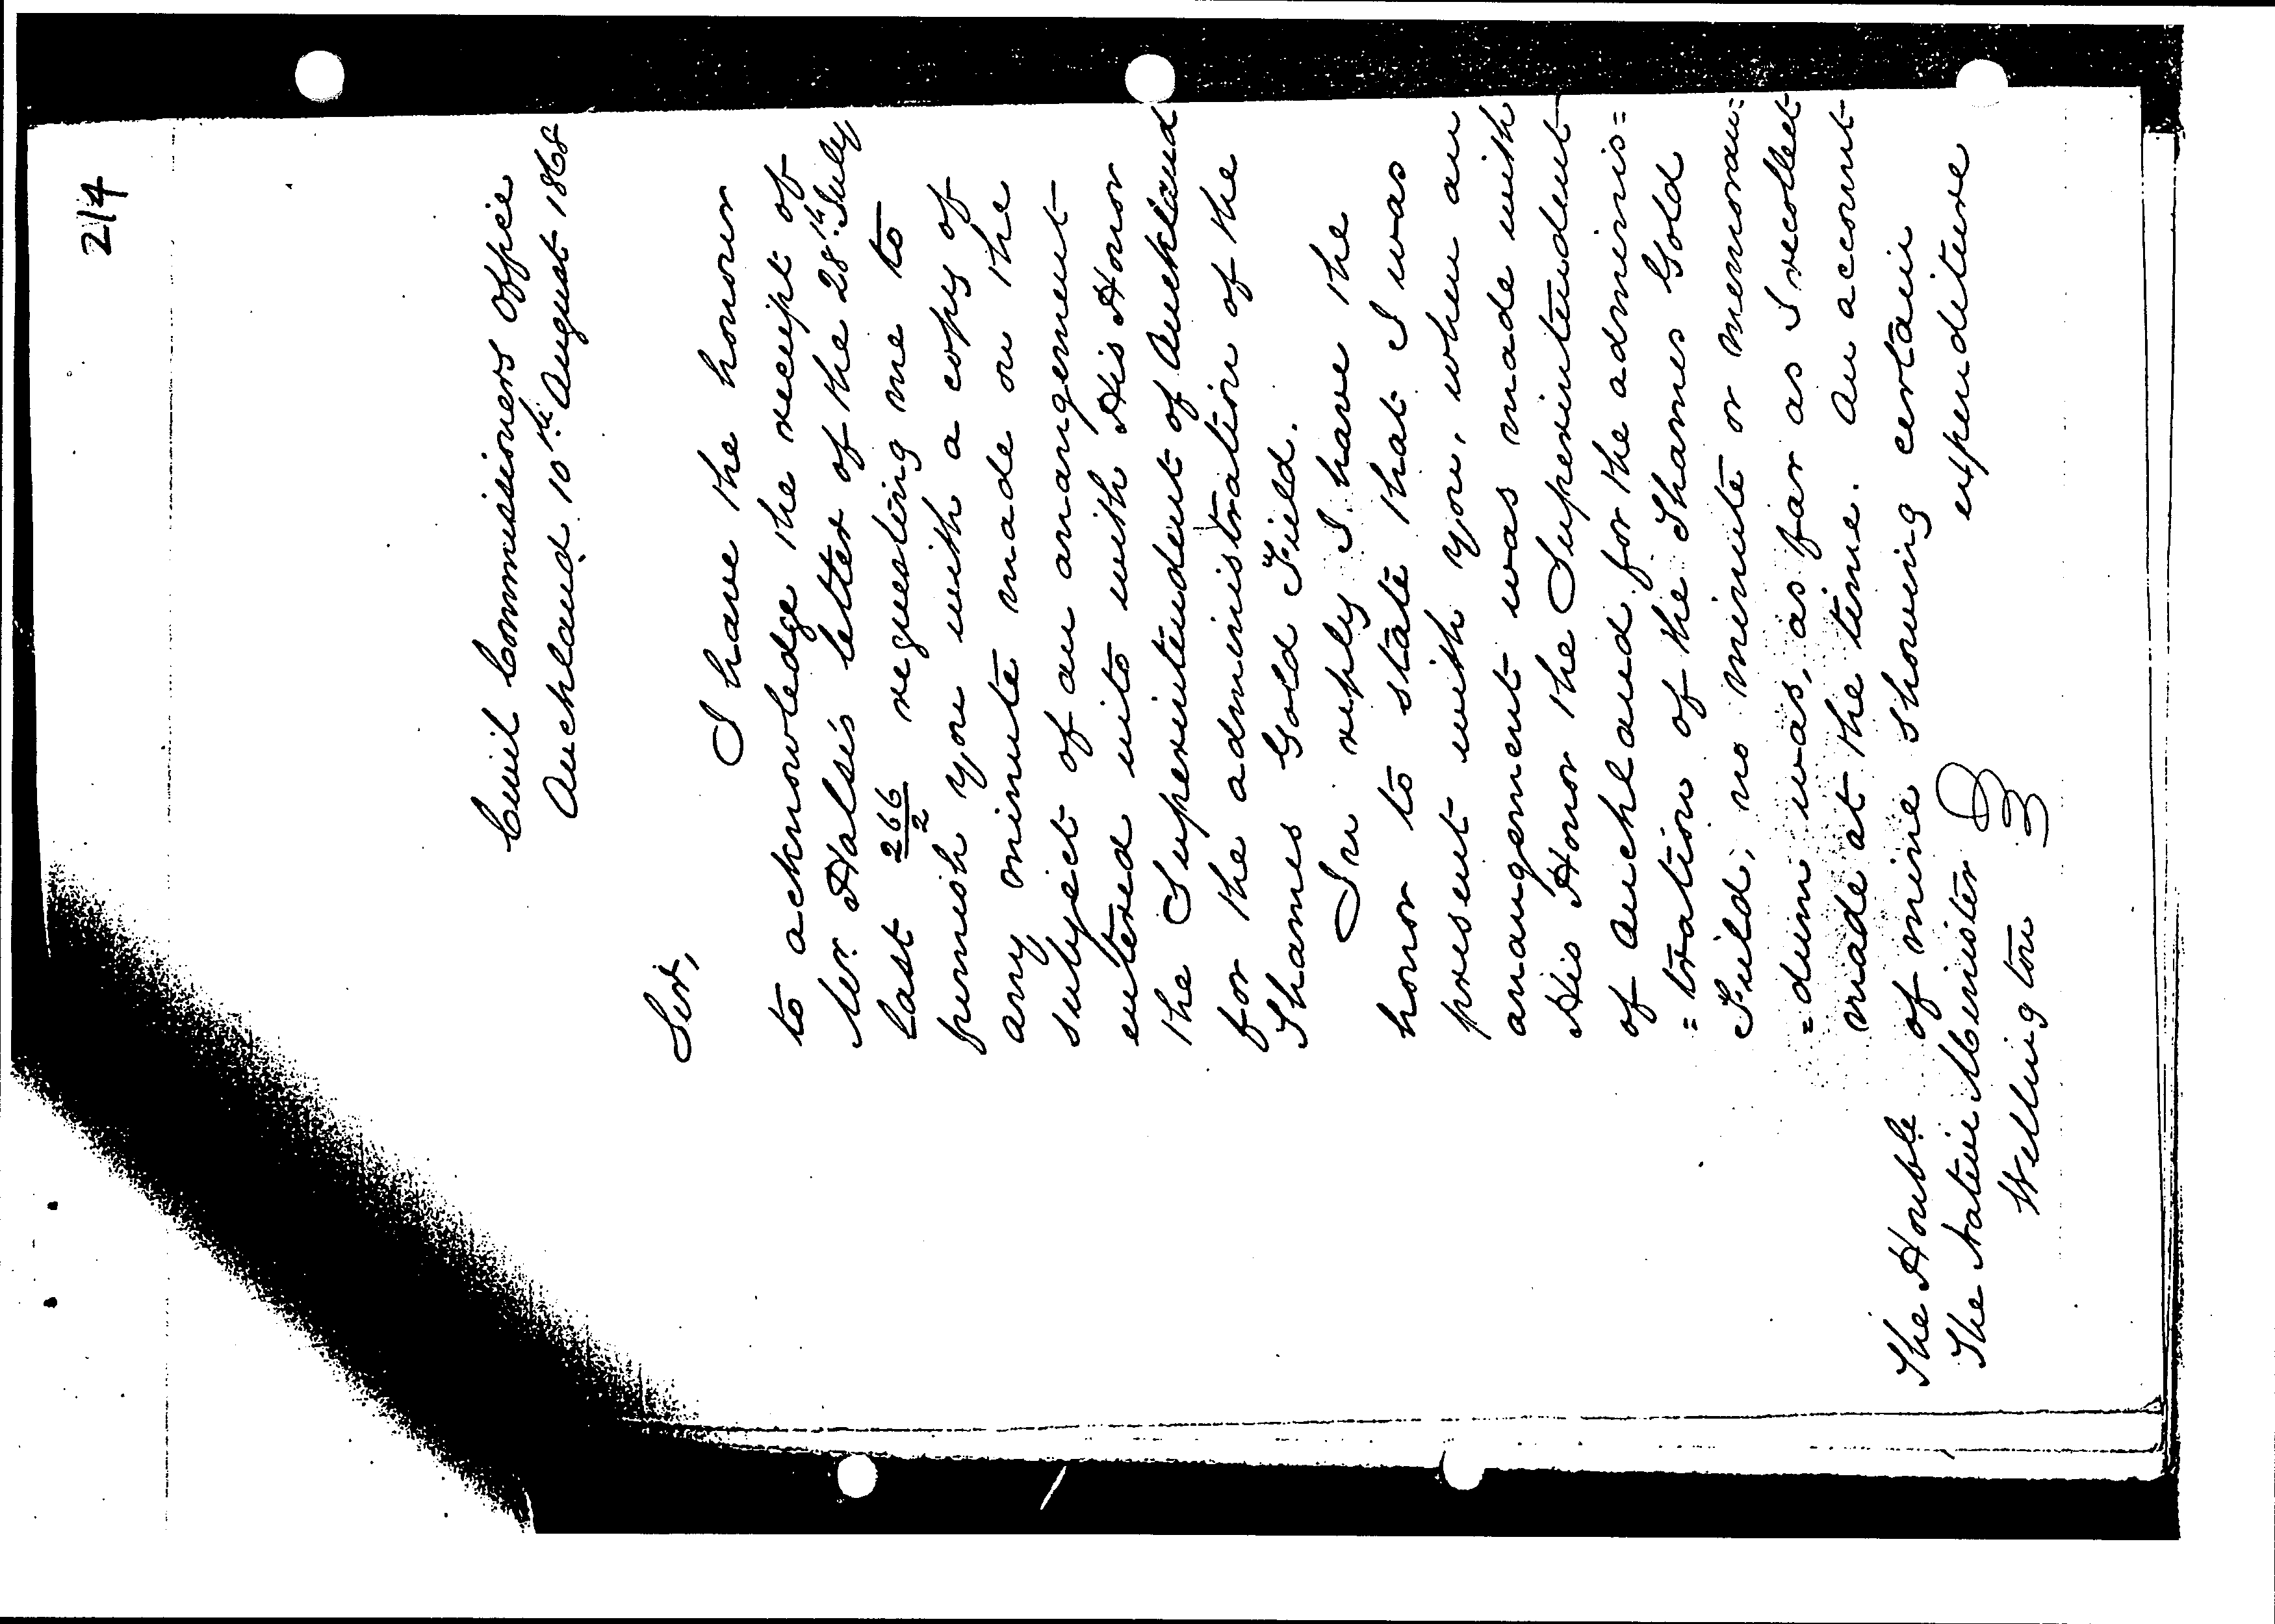 214
Civil Commissioners Office
Auckland 10th August 1868
Sir,
I have the honour
to acknowledge the receipt of
Mr. Halse's letter of the 28th July
last 266/2 requesting me to
furnish you with a copy of
any minute made on the
subject of an arrangement
entered into with His Honor
the Superintendent of Auckland
for the administration of the
Thames Gold Field.
In reply I have the
honor to state that I was
present with you, when an
arrangement was made with
His Honor the Superintendent
of Auckland for the adminis=
=tration of the Thames Gold
Field, no minute or memoran=
=dum was, as far as I recollect
made at the time. An account
of mine showing certain
expenditure
The Honble
The Native Minister
Wellington